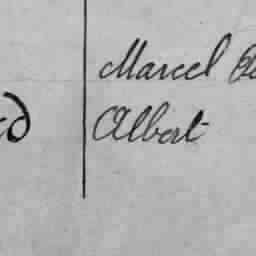 Marcel
Albert